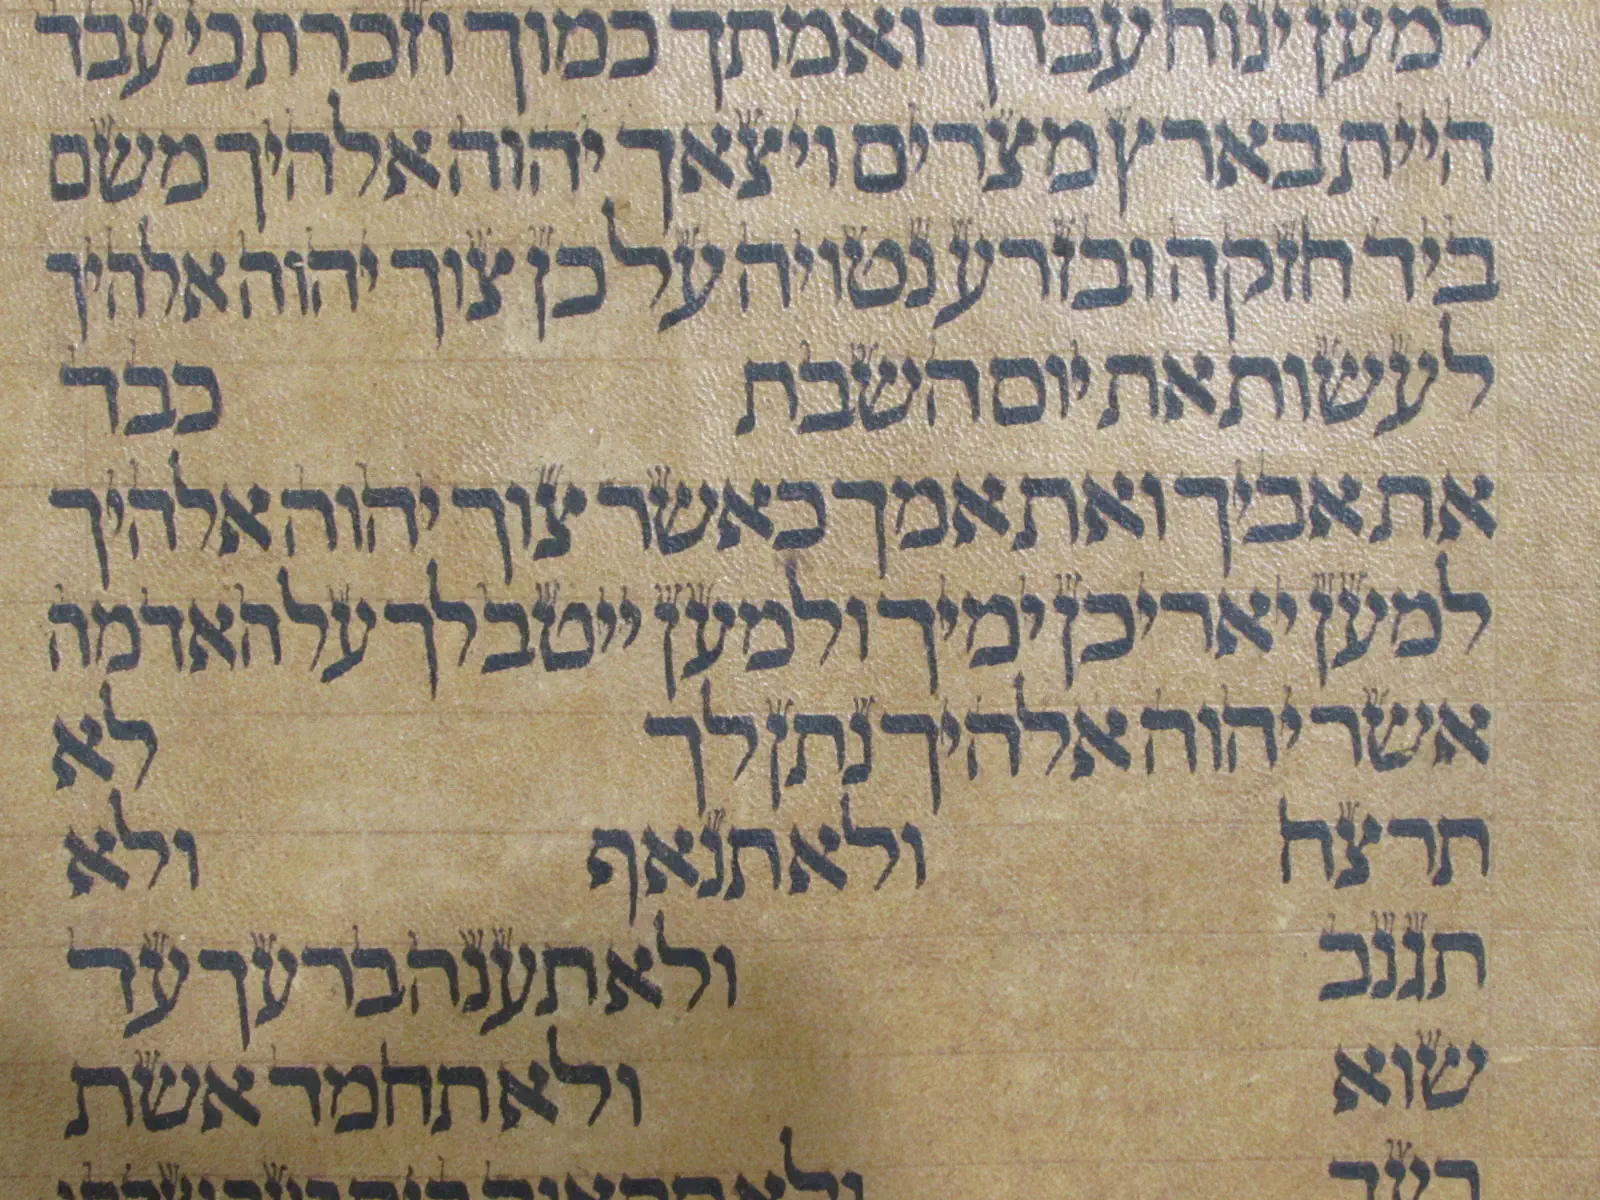 למען ינוח עבדך ואמתך כמוך וזכרת כי עבד
היית בארץ מצרים ויצאך יהוה אלהיך משם
ביד חזקה ובזרע נטויה על כן צוך יהוה אלהיך
לעשות את יום השבת כבד
את אביך ואת אמך כאשר צוך יהוה אלהיך
למען יאריכן ימיך ולמען ייטב לך על האדמה
אשר יהוה אלהיך נתן לך לא
תרצח ולא תנאף ולא
תגנב ולא תענה ברעך עד
שוא ולא תחמד אשת
רעך ולא תתאוה בית רעך שדהו